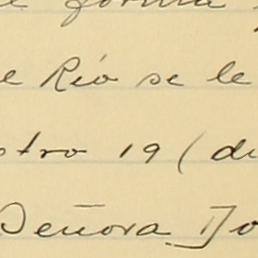 e forma
e Río se le
stro 19 (di
Señora Do